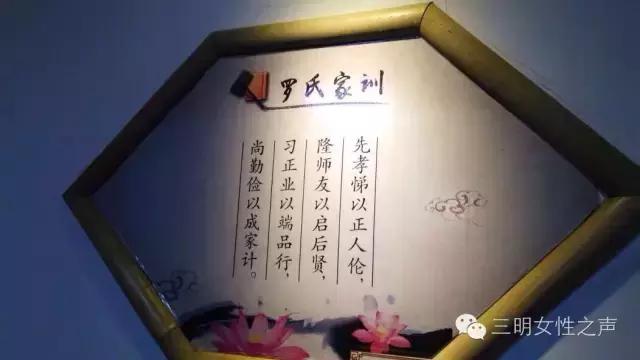 罗氏家训
先孝悌以正人伦，
隆师友以启后贤，
习正业以端品行，
尚勤俭以成家计。
三明女性之声